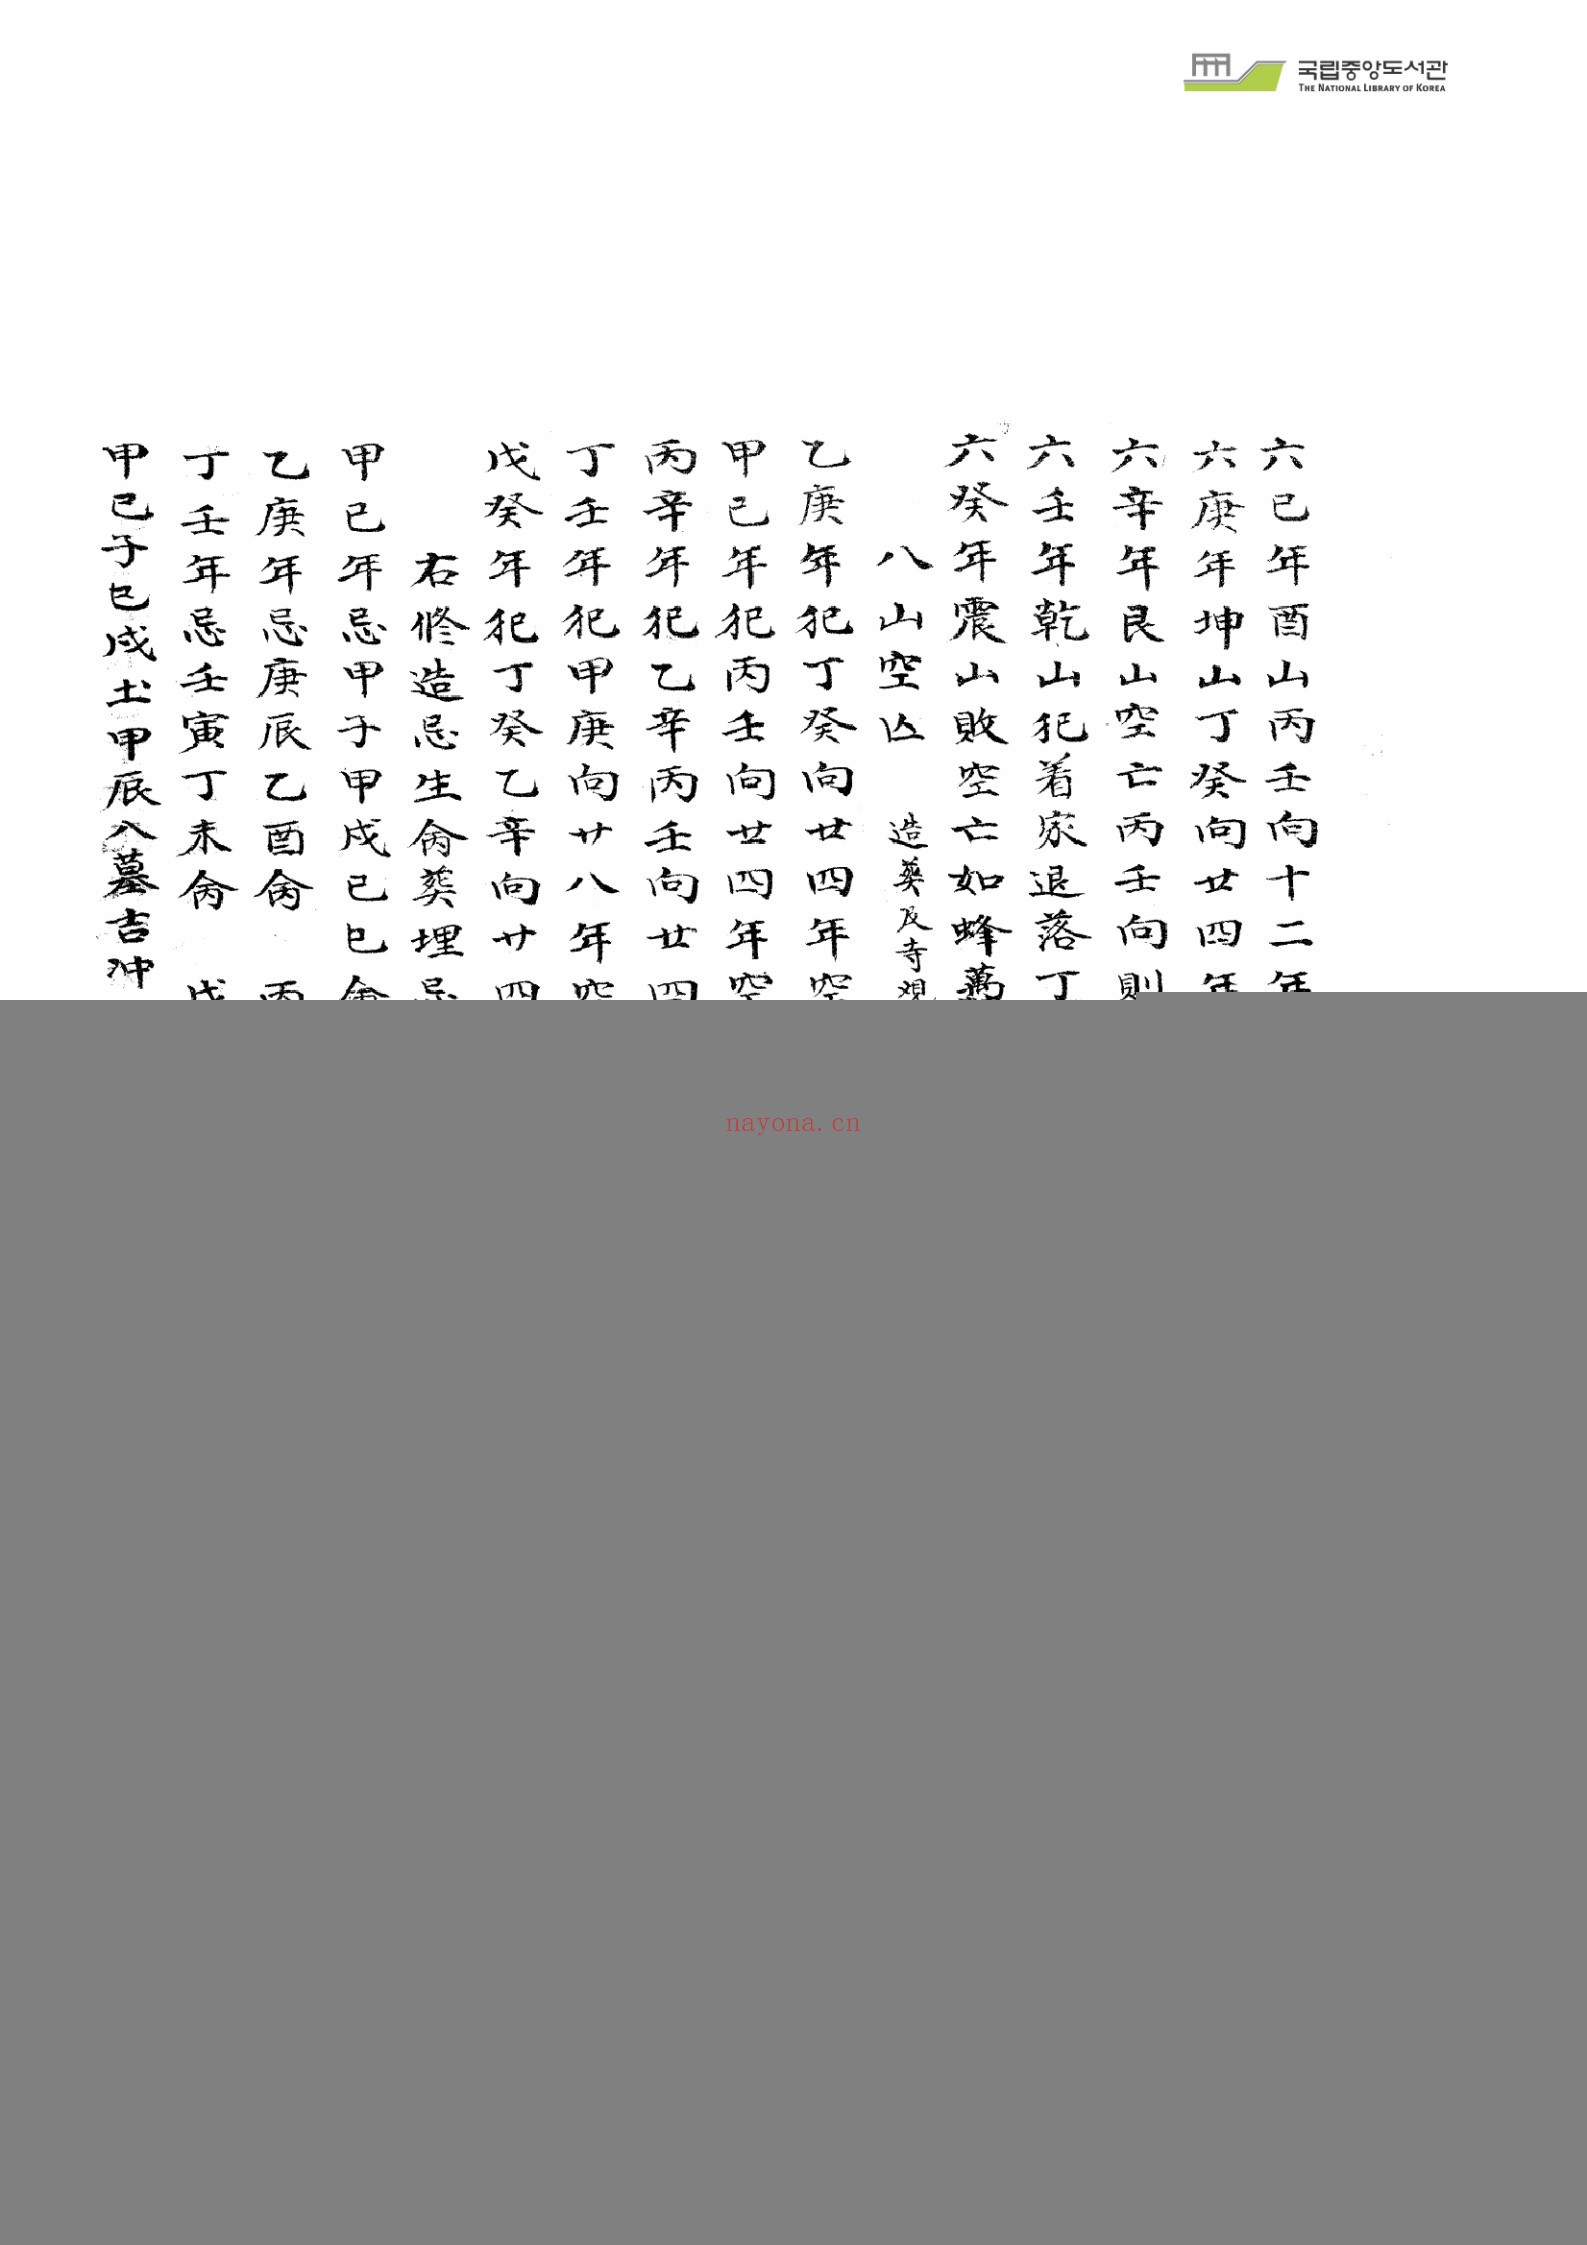 국립중앙도서관
THE NATIONAL LIBRARY OF KOREA
六己年酉山丙壬向十二年
六庚年坤山丁癸向廿四年
六辛年艮山空亡丙壬向則
六壬年乾山犯着家退落丁
六癸年震山敗空亡如蜂萬
八山空亾 造葬及寺观
乙庚年犯丁癸向廿四年空
甲己年犯丙壬向廿四年空
丙辛年犯乙辛丙壬向廿四
丁壬年犯甲庚向廿八年空
戊癸年犯丁癸乙辛向廿四
右修造忌生肏葬埋忌
甲己年忌甲子甲戌己巳肏
乙庚年忌庚辰乙酉肏 丙
丁壬年忌壬寅丁未肏 戊
甲己子巳戌土甲辰八墓吉冲
nayona.cn